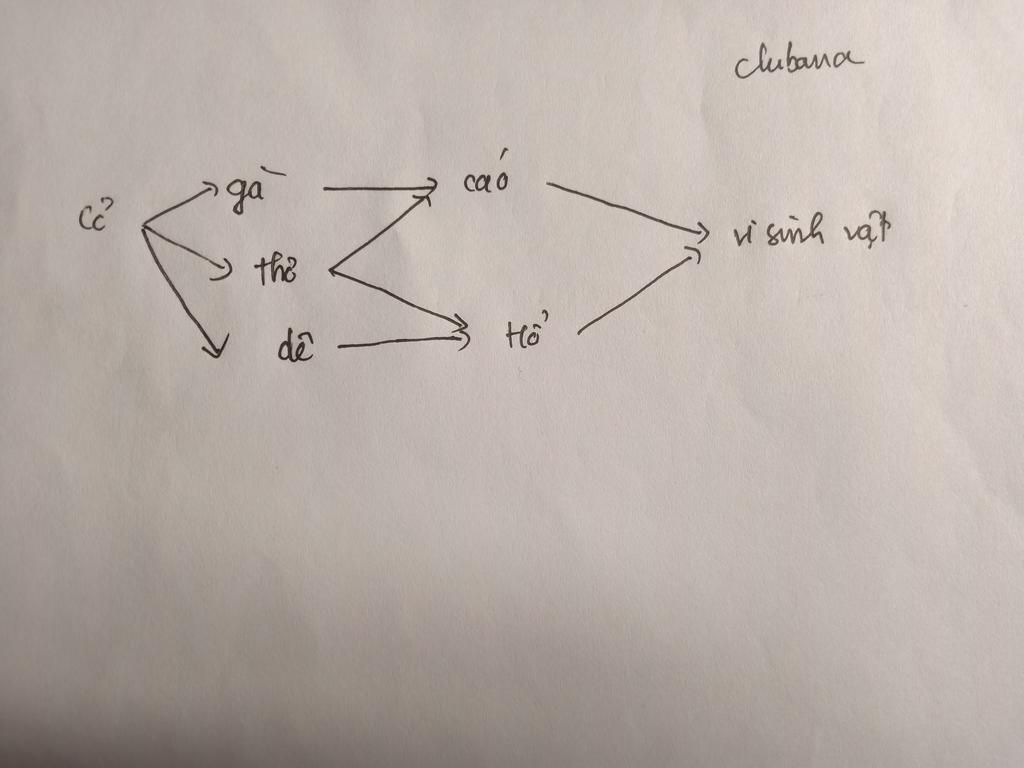 clubana
gà
cáo
cỏ
vi sinh vật
thỏ
dê
Hổ